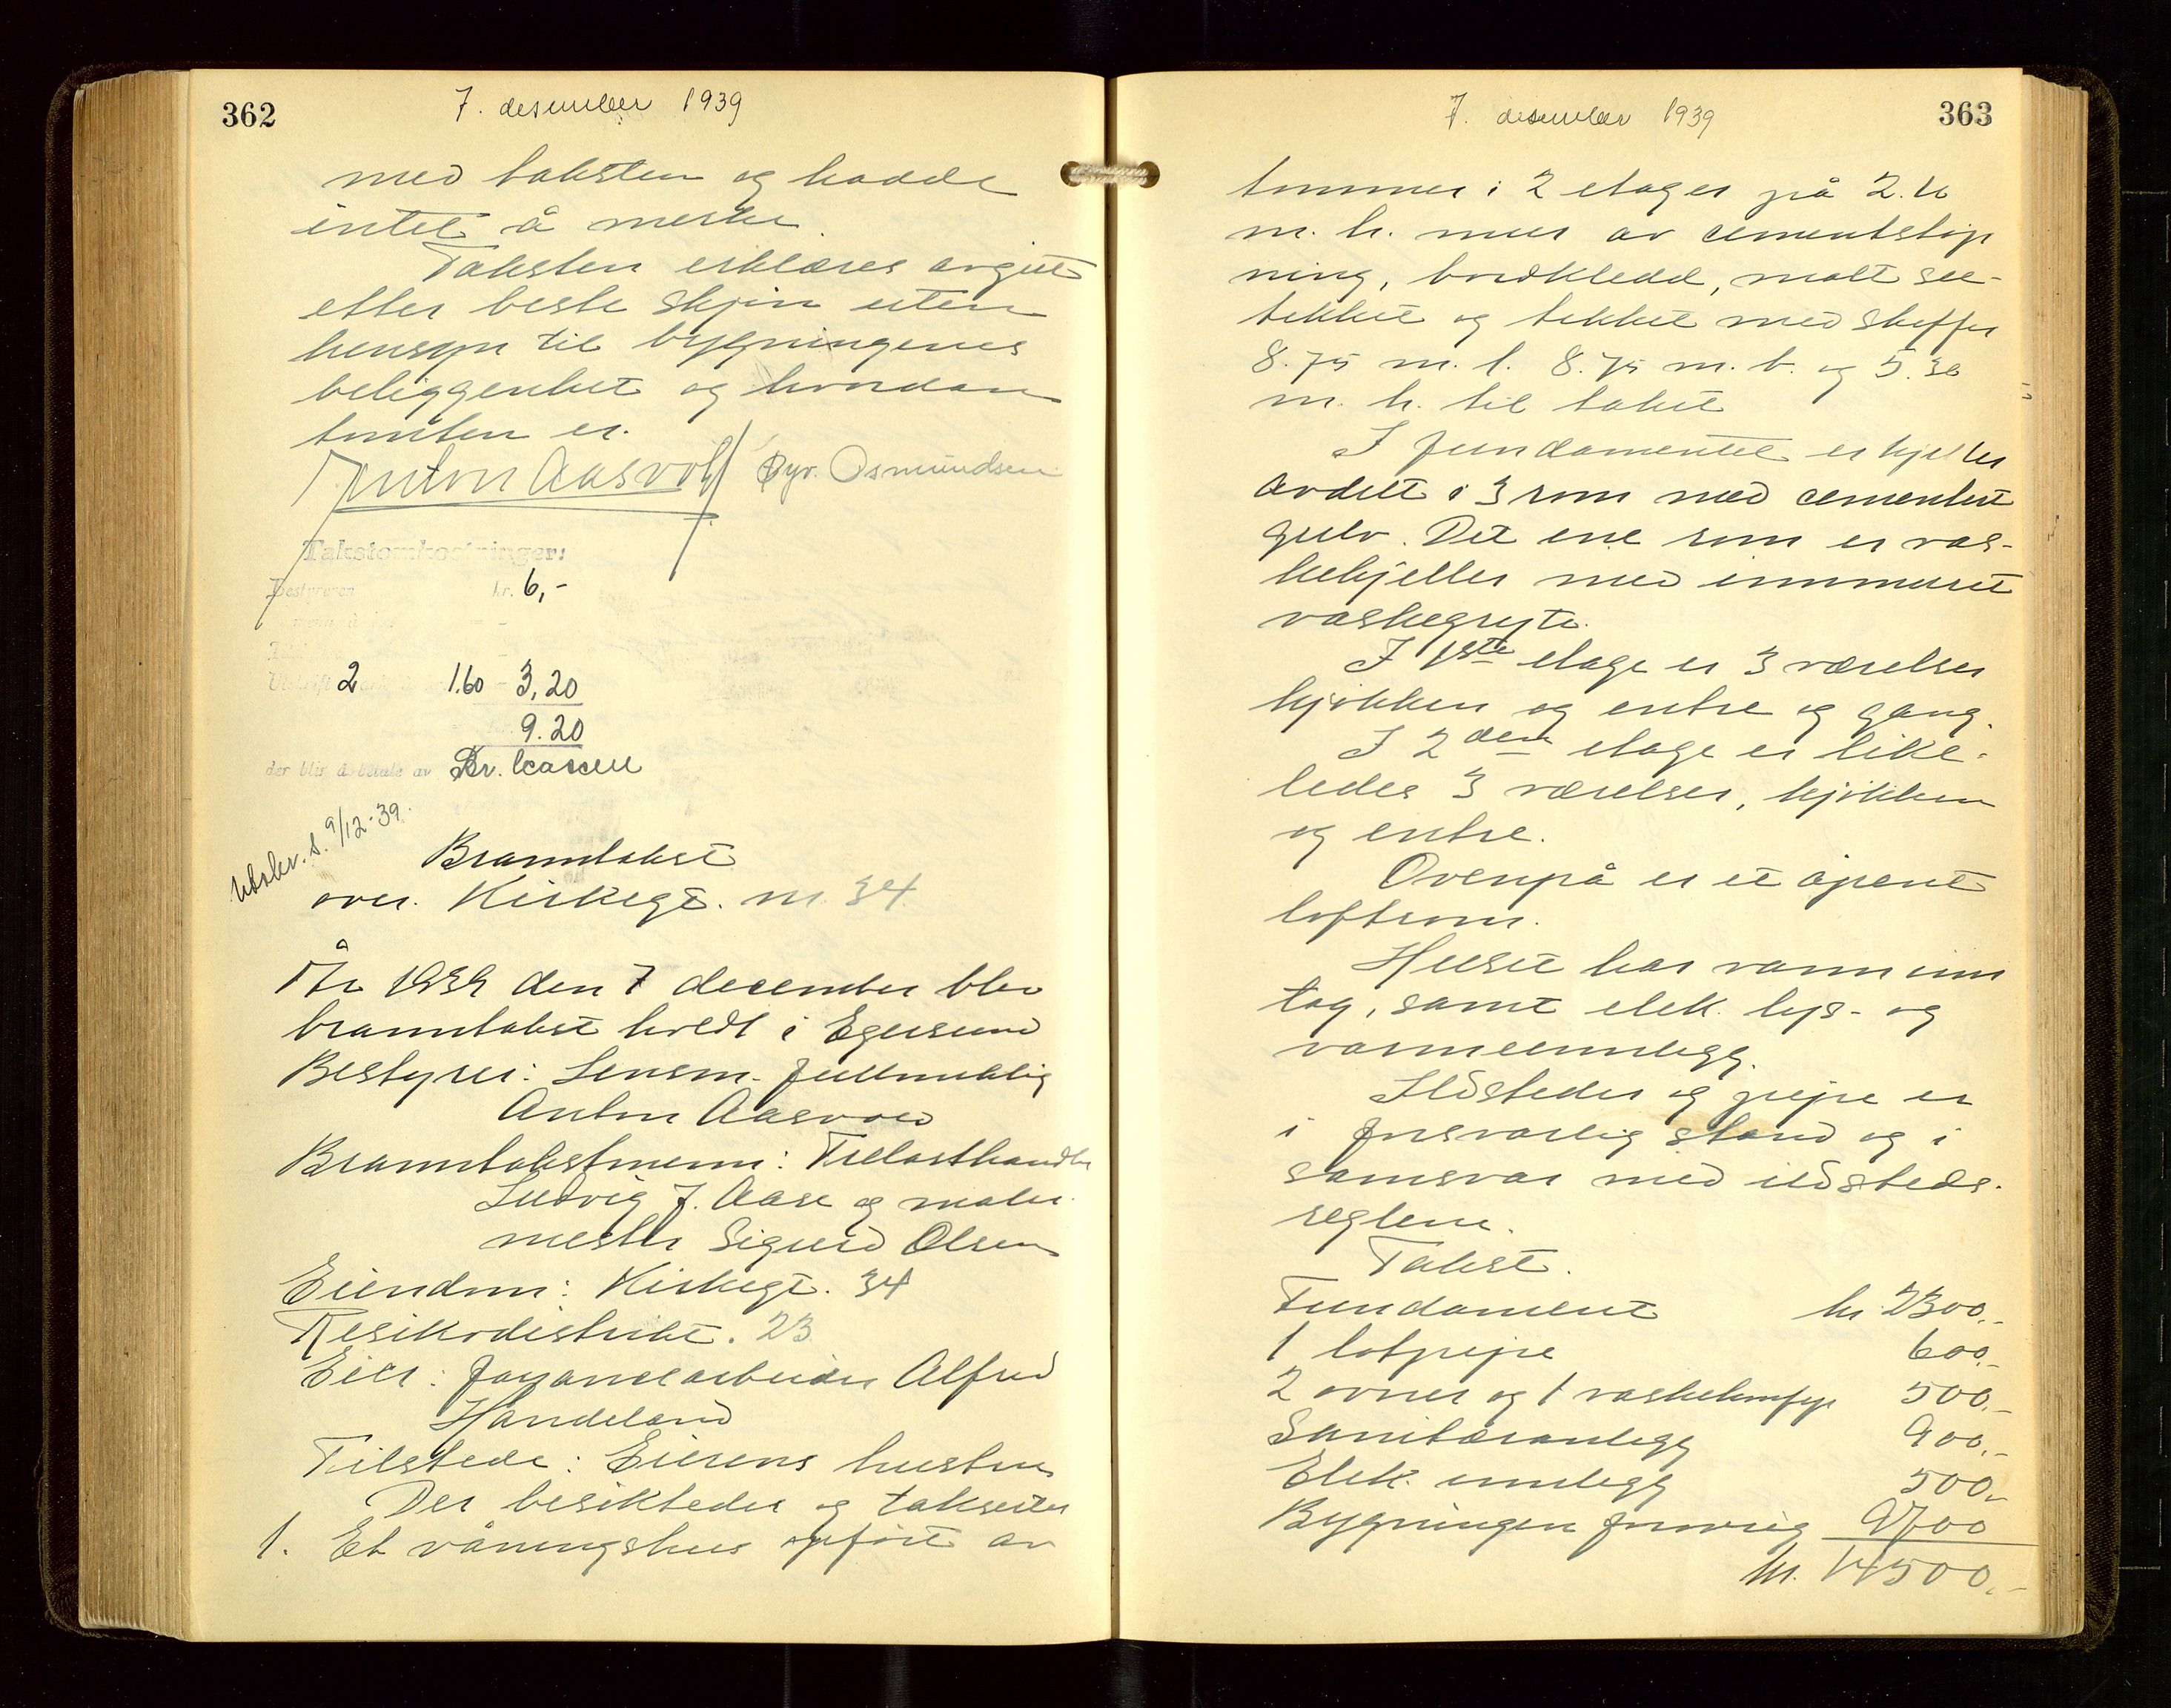 362
7. desember 1939
med taksten og hadde
intet å merke.
Taksten erklæres avgitt
efter beste skjøn uten
hensyn til bygningenes
beliggenhet og hvordan
tomten er.
Anton Aasvold Gyr. Osmundsen
Takstomkostninger:
Bestyreren kr. 6,-
2 1.60 - 3,20
9.20
der blir å betale av Br. Cassen
Utskr. s. 9/12-39.
Branntakst
over Kirkegt. nr. 34
År 1939 den 7 december blev
branntakst holdt i Egersund
Bestyrer: Lensm. fullmektig
Anton Aasvold
Branntakstmenn: Trelasthandler
Ludvig J. Aase og maler
mester Sigurd Olsen
Eiendom: Kirkegt. 34
Resikodistrikt. 23
Eier: fayancearbeider Alfred
Handeland
Tilstede: Eierens hustru
Der besiktedes og takseres
1. Et våningshus opført av
363
7. desember 1939
tømmer i 2 etages på 2.10
m. h. mur av cementstøp
ning, bordkledd, malt su-
tekket og tekket med skiffer
8.75 m. l. 8.75 m. b. og 5.30
m. h. til taket
I fundamentet er kjeller
avdelt i 3 rom med cementert
gulv. Det ene rom er vas-
kekjeller med innmuret
vaskegryte.
I 1ste etage er 3 værelser
kjøkken og entre og gang.
I 2den etage er like-
ledes 3 værelser, kjøkken
og entre.
Ovenpå er et åpent
loftrom.
Huset har vanninn
tag, samt elek. lys- og
varmeinnlegg.
Ildsteder og pipe er
i forsvarlig stand og i
samsvar med ildsteds-
reglene.
Takst.
Fundament kr 2300,-
1 løtpipe 600,-
2 ovner og 1 vaskekomfyr 500,-
Sanitæranlegg 900,-
Elek. innlegg 500,-
Bygningen forøvrig 9700
kr. 14500,-